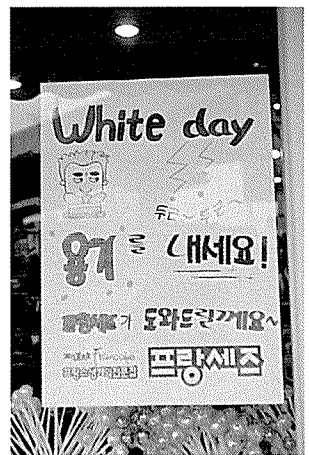 White day
두근~
용기를 내세요!
프랑세즈가 도와드릴께요~
프랑세즈